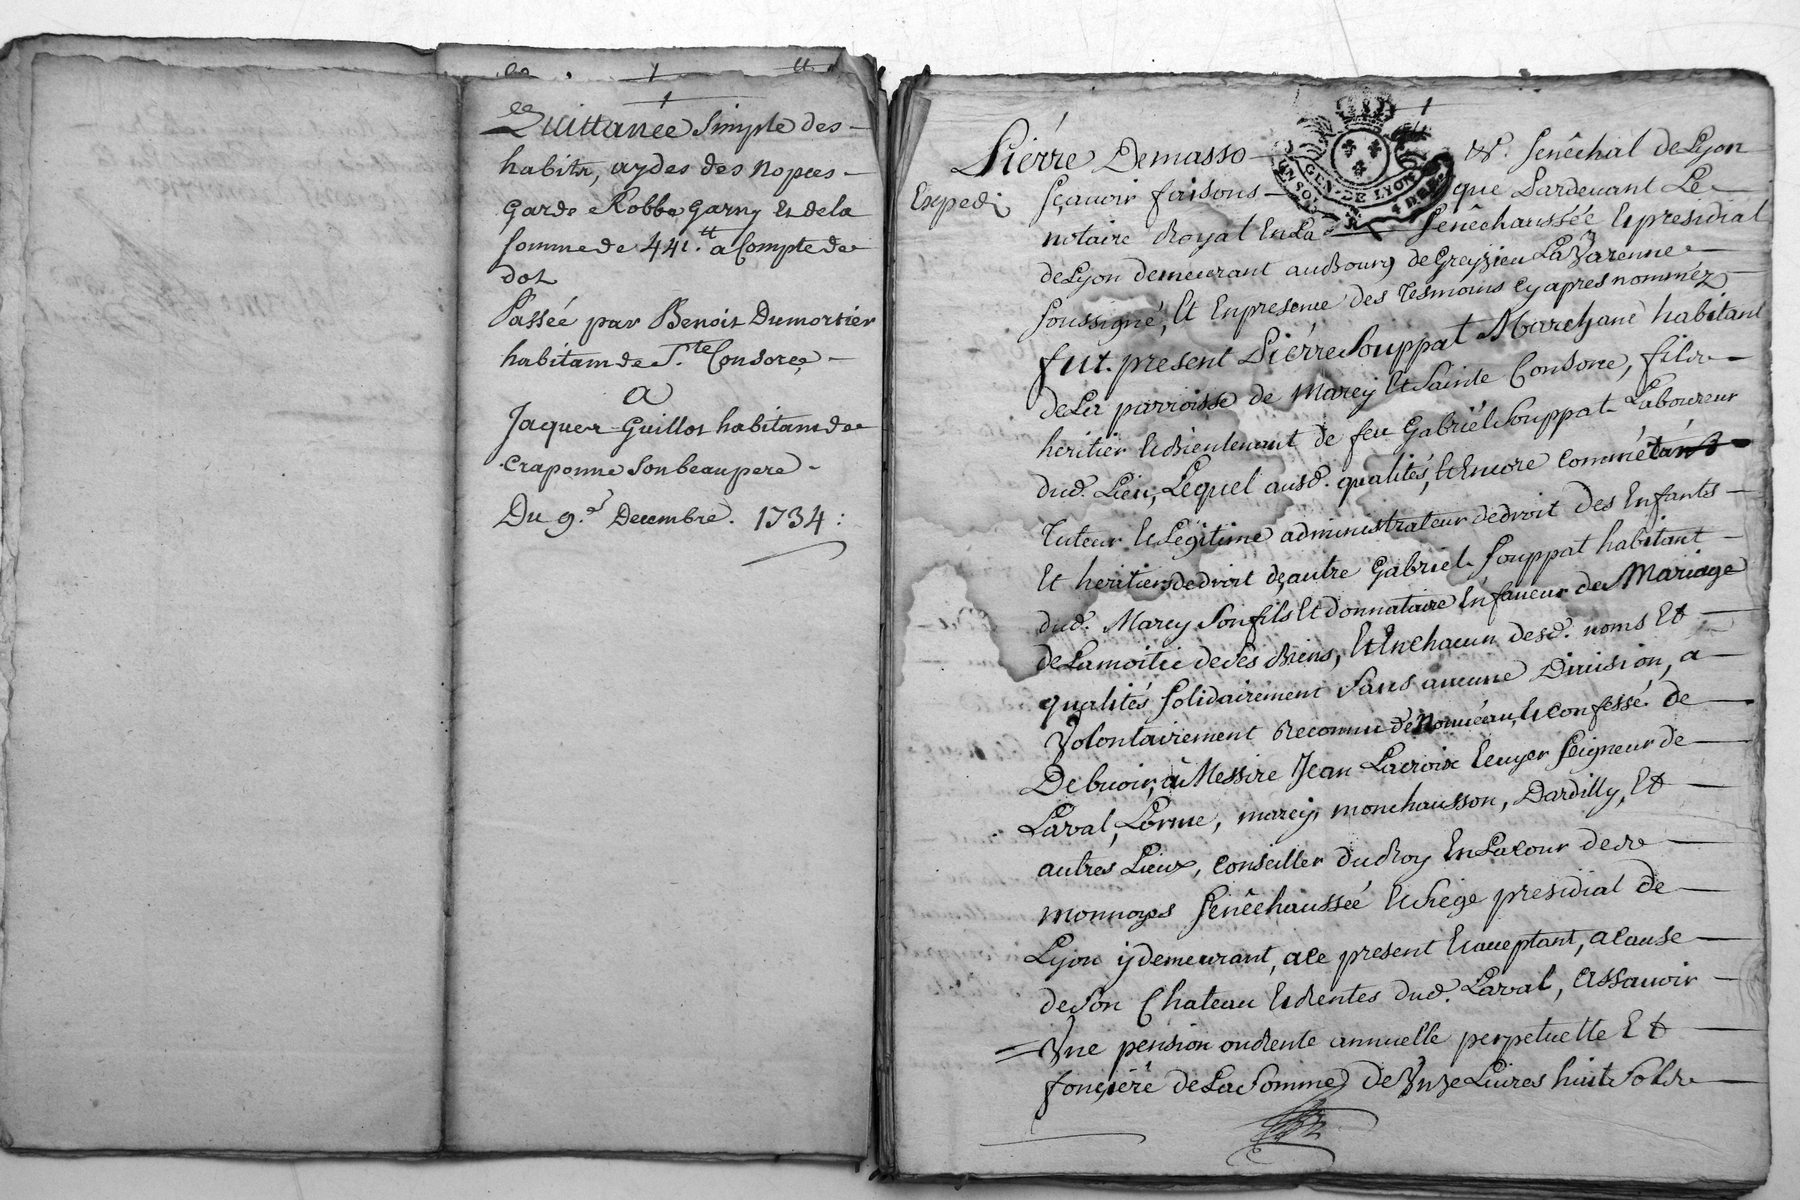 Quittance Simple des
habits, aydes des nopces
Garde Robbe garny Et dela
somme de 441.tt a Compte de
dot
Passée par Benoit Dumortier
habitant de Ste Consorce
A
Jaques Guillot habitant de
craponne son beau pere
Du 9.e Decembre. 1734:
Pierre Demasso &. Senêchal de Lyon
Expedié
sçavoir faisons que Pardevant Le
notaire Royal En La Senêchaussée Et presidial
de Lyon demeurant au Bourg de Greyzieu La Varenne
soussigné, Et En presence des Tesmoins cy apres nommez
fut present Pierre Souppat Marchand habitant
de La parroisse de Marcy Et Sainte Consorce, fils
heritier Et Bientenant de feu Gabriel Souppat Laboureur
dud. Lieu, Lequel ausd. qualités, Et Encore comme
Tuteur Et Legitime administrateur de droit des Enfants
Et heritiers de droit d'autre Gabriel Souppat habitant
dud. Marcy Son fils Et donnataire En faveur de Mariage
de La moitié de ses Biens, Et En chacun desd. noms Et
qualités solidairement sans aucune Division, a
Volontairement Reconnu de Nouveau, Et confessé de
Debvoir, à Messire Jean Lacroix Ecuyer Seigneur de
Laval, Lorme, marcy, monchausson, Dardilly, Et
autres Lieux, Conseiller du Roy En La Cour des
monnoyes Senêchaussée Et Siege presidial de
Lyon y demeurant, a ce present Et acceptant, a cause
de son Chateau Et Rentes dud. Laval, Assavoir
Une pension ou Rente annuelle perpetuelle Et
fonçiere de La Somme de Unze Livres huit Sols
GEN. DE LYON